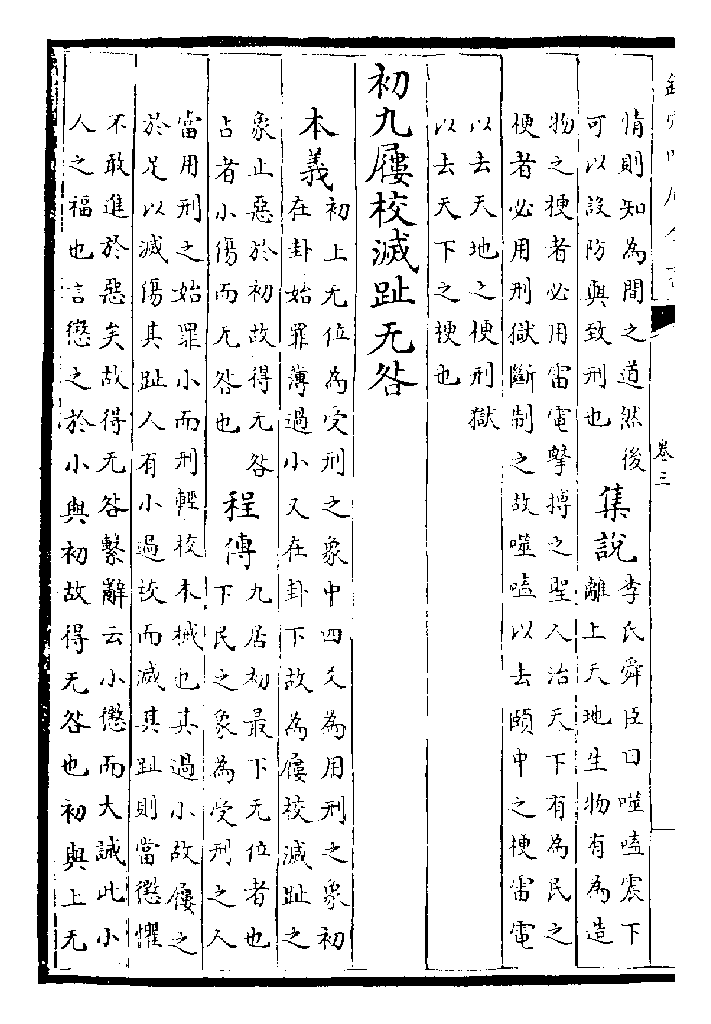 卷三
情則知為間之道然後
可以設防與致刑也
集說
李氏舜臣曰噬嗑震下
離上天地生物有為造
物之梗者必用雷電擊搏之聖人治天下有為民之
梗者必用刑獄斷制之故噬嗑以去頤中之梗雷電
以去天地之梗刑獄
以去天下之梗也
初九屨校滅趾无咎
本義
初上无位為受刑之象中四爻為用刑之象初
在卦始罪薄過小又在卦下故為屨校滅趾之
象止惡於初故得无咎
占者小傷而无咎也
程傳
九居初最下无位者也
下民之象為受刑之人
當用刑之始罪小而刑輕校木械也其過小故屨之
於足以滅傷其趾人有小過校而滅其趾則當懲懼
不敢進於惡矣故得无咎繫辭云小懲而大誡此小
人之福也言懲之於小與初故得无咎也初與上无